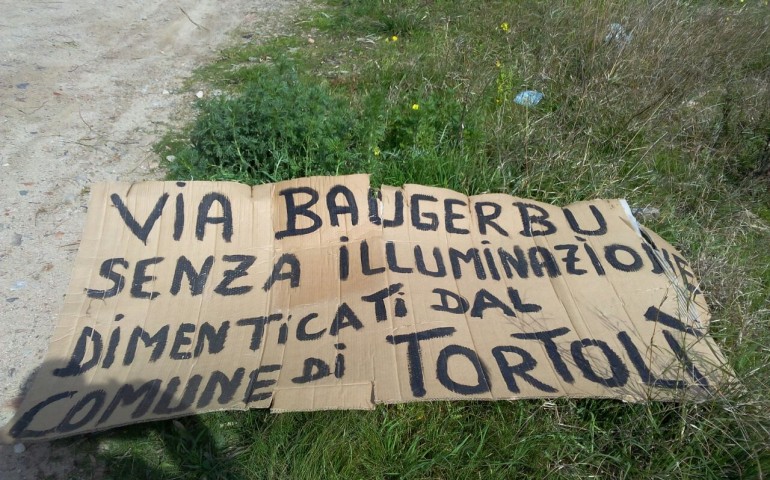 VIA BAUGERBU
SENZA ILLUMINAZIONE
DIMENTICATI DAL
COMUNE DI TORTOLÌ